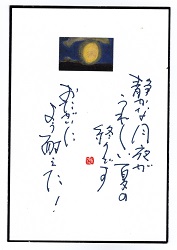 静かな月夜が
うれしい夏の
終りです
おたがいに
よう耐えた！